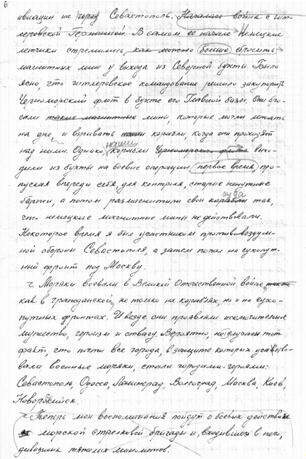 6
авиации на город Севастополь. Началась война с гит-
леровской Германией. В самом ее начале немецкие
летчики стремились, как можно больше сбросить
магнитных мин у выхода из Северной бухты. Было
ясно, что гитлеровское командование решило закупорить
Черноморский флот в бухте его Главной базы. Они бро-
сали такие магнитные мины, которые могли лежать
на дне, и взрывать корабли, когда они проходят
над ними. Однако корабли Черноморского флота выхо-
дили из бухты на боевые операции первое время, про-
пуская впереди себя для контроля, старые ненужные
баржи, а потом размагнитили свои суда так,
что немецкие магнитные мины не действовали.
Некоторое время я был участником противовоздуш-
ной обороны Севастополя, а затем попал на сухопут-
ный фронт под Москву.
Моряки воевали в Великой Отечественной войне,
как в гражданской, не только на кораблях, но и на сухо-
путных фронтах. И везде они проявляли исключительное
мужество, героизм и отвагу. Вероятно, не случаен тот
факт, что почти все города, в защите которых участво-
вали военные моряки, стали городами-героями:
Севастополь, Одесса, Ленинград, Волгоград, Москва, Киев,
Новороссийск.
Теперь мои воспоминания пойдут о боевых действиях
морской стрелковой бригады и, входившего в нее,
дивизиона тяжелых минометов.